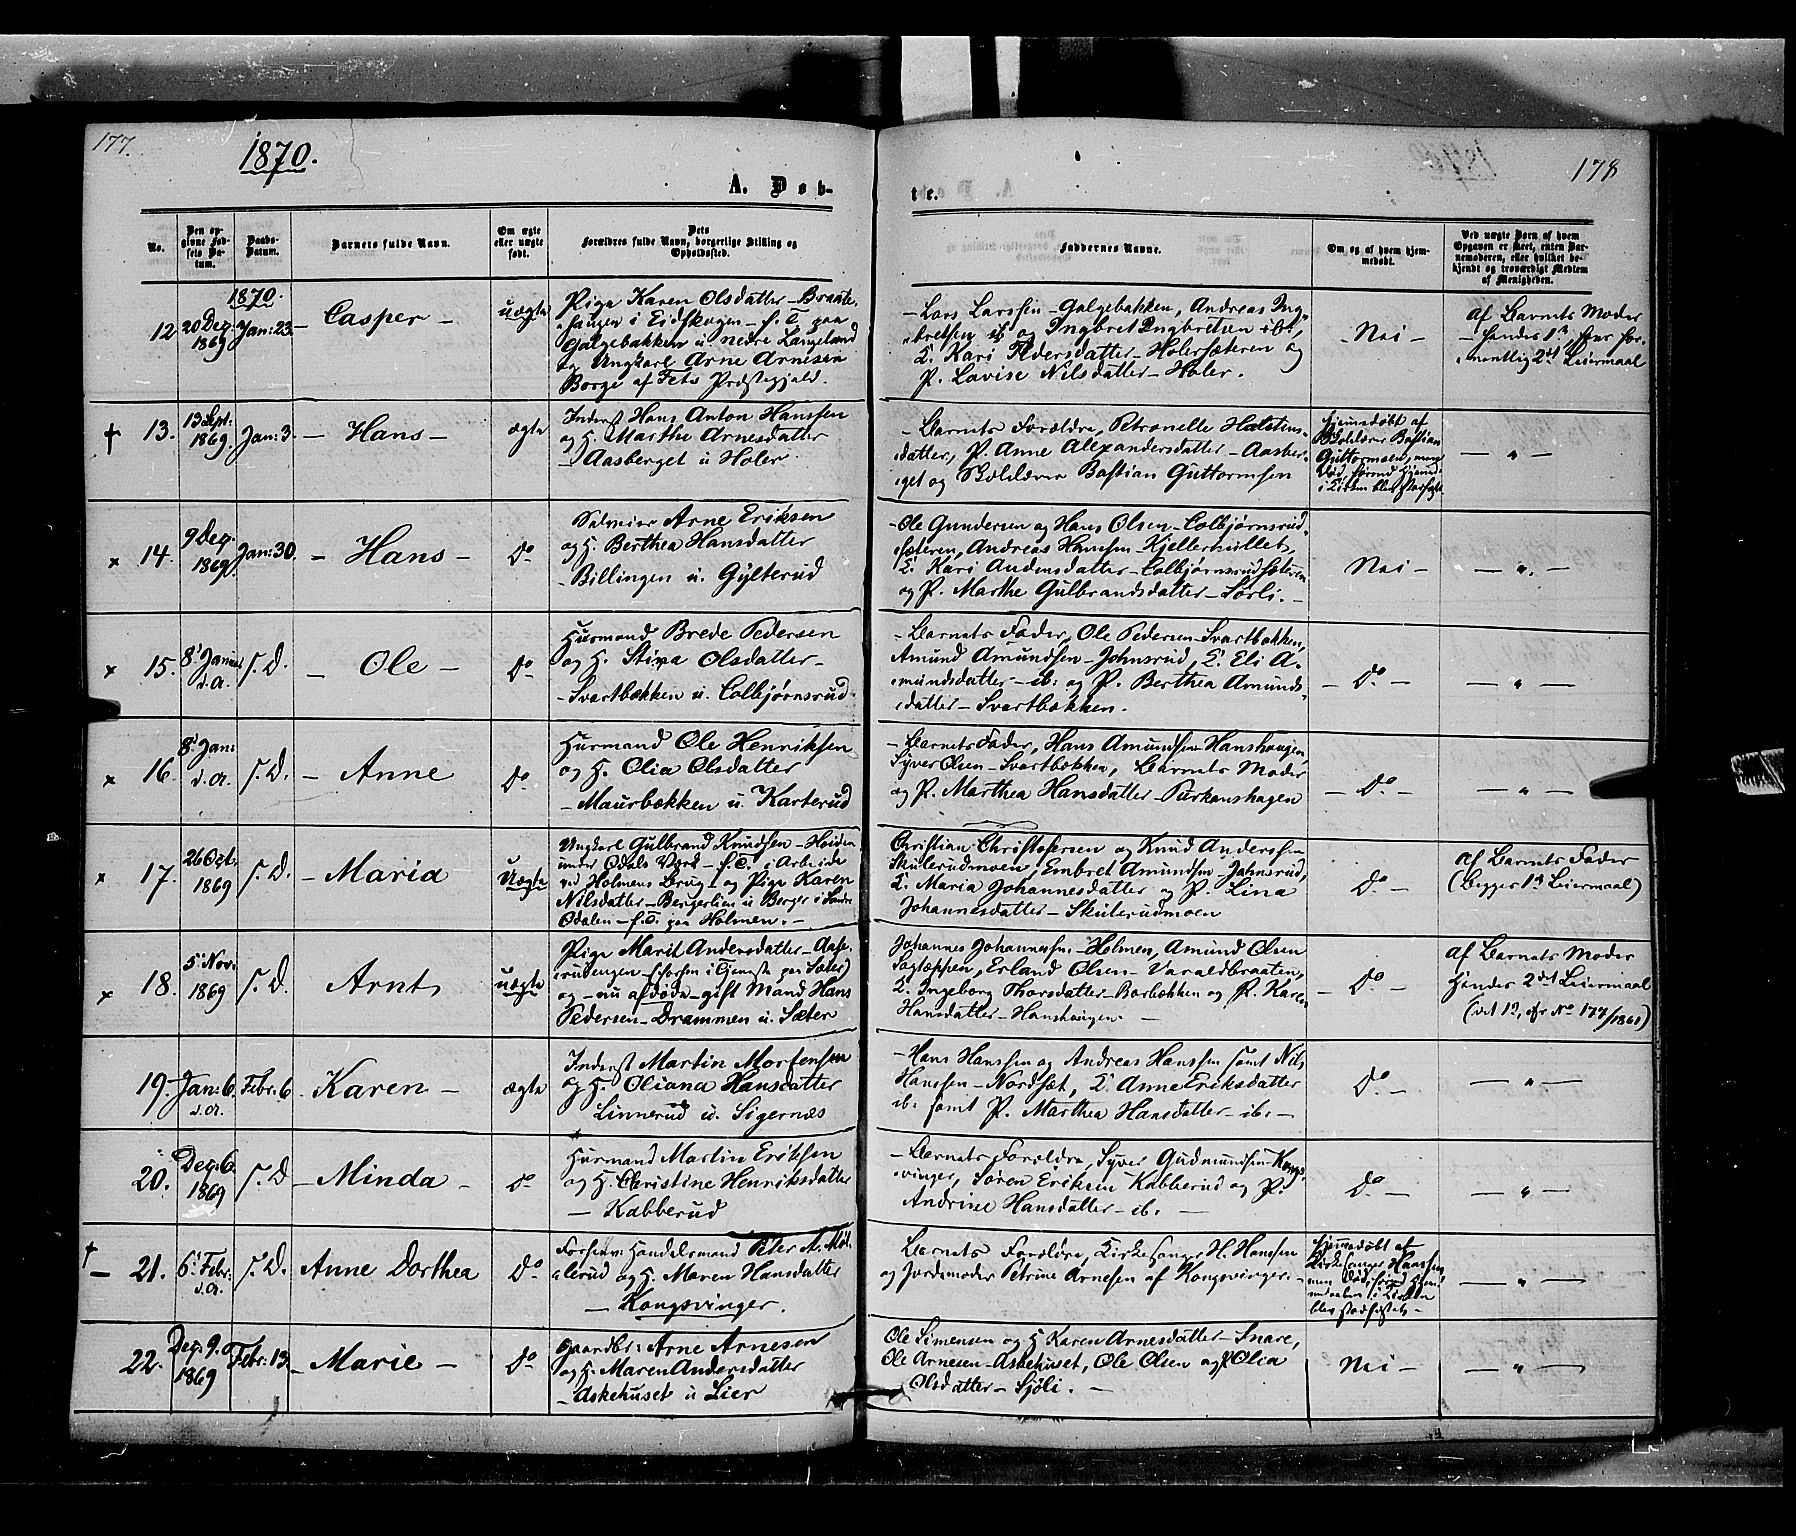 177.
1870.
A. Døb-
No.
Den opgivne Fødsels Datum.
Daabs-Datum.
Barnets fulde Navn.
Om ægte eller uægte født.
Dets Forældres fulde Navn, borgerlige Stilling og Opholdssted.
178
te.
Faddernes Navne.
Om og af hvem hjemmedøbt.
Ved uægte Børn af hvem Opgaven er skeet, enten Barnemoderen, eller hvilket bekjendt og troværdigt Medlem af Menigheden.
1870.
12
20 Dec: 1869
Jan: 23.
Casper
uægte
Pige Karen Olsdatter - Braate-
haugen i Eidskogen - f. T. paa
Galgebakken u nedre Langeland
og Ungkarl Arne Arnesen
Borge af Fets Præstegjæld.
Lars Larssen - Galgebakken, Andreas Ing-
bretsen ib: og Ingbret Ingbretsen ib:,
K. Kari Pedersdatter - Holersæteren og
P. Lovise Nilsdatter - Holer.
Nei
af Barnets Moder
- hendes 1ste hans for-
mentlig 2det Leiermaal
† 13.
13 Sept: 1869.
Jan: 3.
Hans
ægte
Inderst Hans Anton Hanssen
og H. Marthe Arnesdatter
Aasberget u Holer
Barnets Forældre, Petronelle Halstens-
datter, P. Anne Alexandersdatter - Aasber-
get og Skolelærer Bastian Guttormsen
Hjemmedøbt af
Skolelærer Bastian
Guttormsen, men
død, førend Hjemd:
i Kirken blev stadfæstet
- " -
x 14.
9 Dec. 1869.
Jan: 30.
Hans
Do
Selveier Arne Eriksen
og H. Berthea Hansdatter
Billingen u. Gylterud
Ole Gundersen og Hans Olsen - Colbjørnsrud-
sæteren, Andreas Hanssen - Kjellerhullet,
K. Kari Andersdatter - Colbjørnsrudsæteren
og P. Marthe Gulbrandsdatter - Sørli.
Nei
- " -
x 15.
8' Januar d. A.
s. D.
Ole
Do
Huusmand Brede Pedersen
og H. Stina Olsdatter -
Svartbækken u. Colbjørnsrud
Barnets Fader, Ole Pedersen - Svartbækken,
Amund Amundsen - Johnsrud, K. Eli A-
mundsdatter - ib: og P. Berthea Amunds-
datter - Svartbækken.
Do
- " -
x 16.
8' Jan: d. A.
s. D.
Anne
Do
Huusmand Ole Henriksen
og H. Olia Olsdatter
- Maurbækken u. Karterud
Barnets Fader, Hans Amundsen - Hanshaugen,
Syver Olsen - Svartbækken, Barnets Moder
og P. Marthea Hansdatter - Purkanshagen
Do
- " -
x 17.
26 Oct. 1869
s. D.
Maria
Uægte
Ungkarl Gulbrand Knudsen - Heiden
under Odals Værk - f. T. i Arbeide
ved Holmens Brug - og Pige Karen
Nilsdatter - Bergerlien u Berger i Søndre
Odalen - f. T. paa Holmen.
Christian Christophersen og Knud Anderssen
Skulerudmoen, Embret Amundsen - Johnsrud,
K. Maria Johannesdatter og P. Lina
Johannesdatter - Skulerudmoen
Do
af Barnets Fader
(Begges 1ste Leiermaal)
x 18.
5' Nov: 1869
s. D.
Arnt
uægte
Pige Marit Andersdatter - Aase-
rudengen (forhen i Tjeneste paa Sæter)
og - nu afdøde - gift Mand Hans
Pedersen - Drammen u. Sæter
Johannes Johannessen - Holmen, Amund Olsen
Sagtøppen, Erland Olsen - Varaldbraaten,
K. Ingeborg Thorsdatter - Borbækken og P. Karen
Hansdatter - Hanshaugen.
Do
af Barnets Moder
Hendes 2det Leiermaal
(ved 1ste, cfr No 177/1861)
19.
Jan: 6. d. A.
Febr: 6
Karen
ægte
Inderst Martin Mortensen
og H. Oliana Hansdatter
Linnerud u. Sigernæs
Hans Hanssen og Andreas Hanssen samt Nils
Hanssen - Nordsæt, K. Anne Eriksdatter
ib: samt P. Marthea Hansdatter - ib:
Do
- " -
20.
Dec: 6. 1869
s. D
Minda
Do
Huusmand Martin Eriksen
og H. Christine Henriksdatter
- Kabberud
Barnets Forældre, Syver Gudmundsen - Kongs-
vinger, Søren Eriksen Kabberud og P.
Andrine Hansdatter - ib:
Do
- " -
† 21.
6' Febr: d. A.
s. D.
Anne Dorthea
Do
Forhenv: Handelsmand Peter A. Møl-
lerud og H. Maren Hansdatter
- Kongsvinger.
Barnets Forældre, Kirkesanger H. Hanssen
og Jordemoder Petrine Arnesen af Kongsvinger.
Hjemmedøbt af
Kirkesanger Hanssen,
men død, førend Hjem-
medaaben i Kirken
blev stadfæstet -
- " -
22.
Dec: 9. 1869
Febr: 13
Marie
Do
Gaardbr: Arne Arnesen
og H. Maren Andersdatter
Askehuset u Lier
Ole Simensen og H. Karen Arnesdatter - Snare,
Ole Arnesen - Askehuset, Ole Olsen og P. Olia
Olsdatter - Sjøli.
Nei
- " -